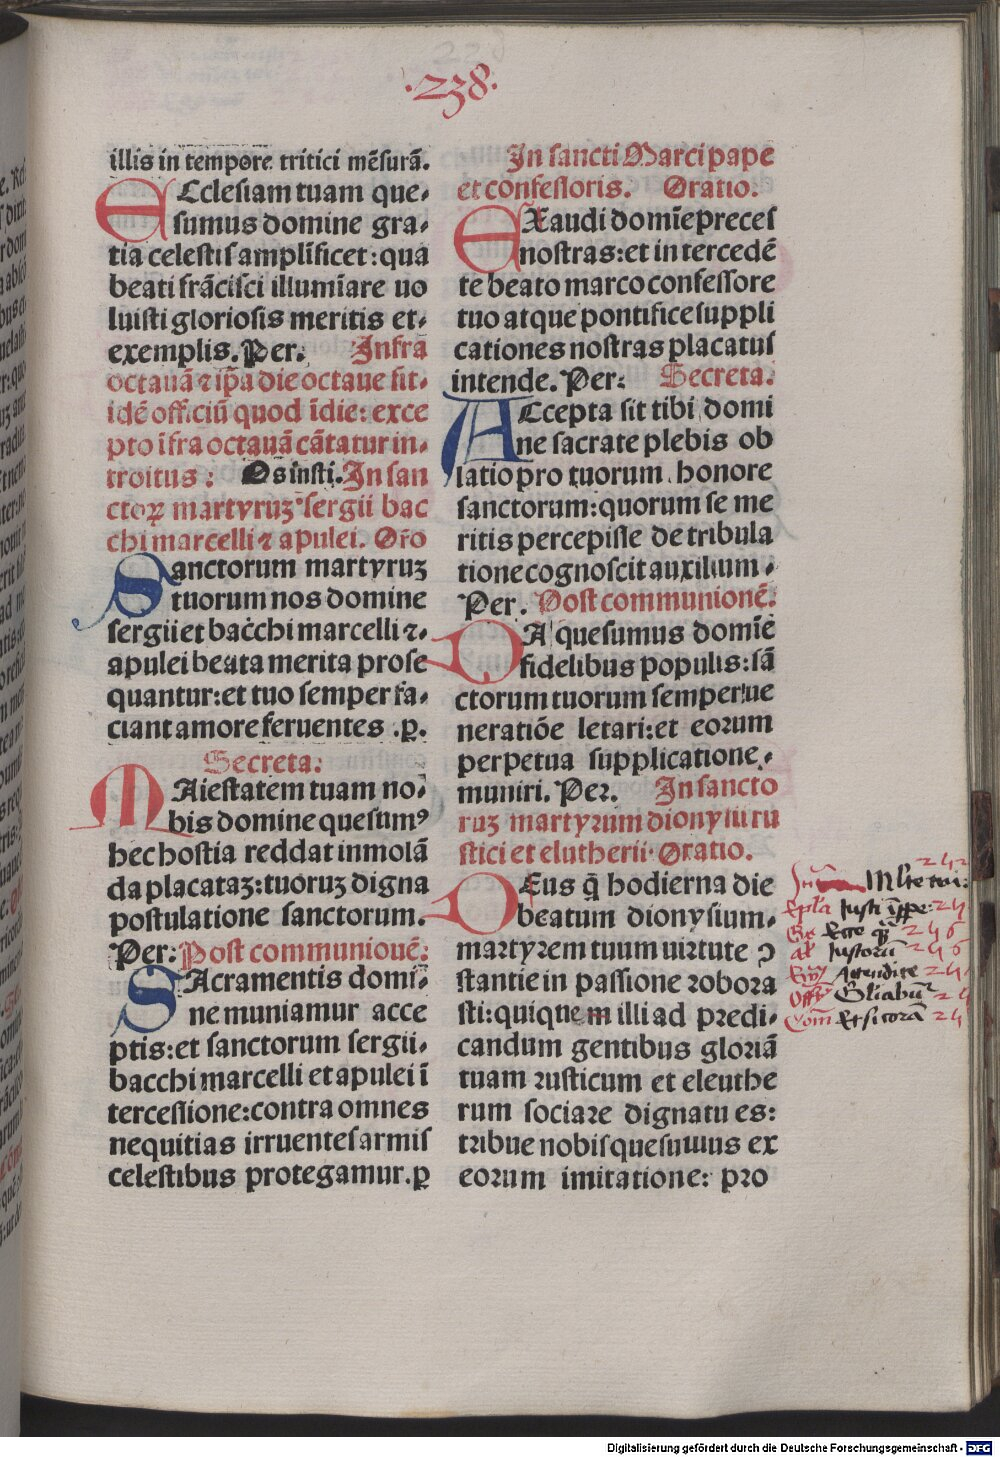 .238.
illis in tempore tritici mēsurā.
ECclesiam tuam que-
sumus domine gra-
tia celestis amplificet: qua
beati frācisci illumīare uo
luisti gloriosis meritis et-
exemplis. Per. Infra
octauā ⁊ ip̄a die octaue fit-
idē officiū quod īdie: exce
pto īfra octauā cātatur in-
troitus: Os iusti. In san
ctoꝝ martyruꝫ sergii bac
chi marcelli ⁊ apulei. Oro
Sanctorum martyruꝫ
tuorum nos domine
sergii et bacchi marcelli ⁊-
apulei beata merita prose
quantur: et tuo semper fa-
ciant amore feruentes .p̱.
Secreta:
MAiestatem tuam no-
bis domine quesumꝰ
hec hostia reddat inmolā
da placataꝫ: tuoruꝫ digna
postulatione sanctorum.
Per: Post communiouē:
SAcramentis domi-
ne muniamur acce
ptis: et sanctorum sergii-
bacchi marcelli et apulei ī
tercessione: contra omnes
nequitias irruentes armis
celestibus protegamur. p̱
In sancti Marci pape
et confessoris. Oratio:
EXaudi domīe preces
nostras: et in tercedē
te beato marco confessore
tuo atque pontifice suppli
cationes nostras placatus
intende. Per: Secreta:
ACcepta sit tibi domi
ne sacrate plebis ob
latio pro tuorum honore
sanctorum: quorum se me
ritis percepisse de tribula
tione cognoscit auxilium.
Per. Post communionē:
DA quesumus domīe
fidelibus populis: sā
ctorum tuorum semper ue
neratiōe letari: et eorum
perpetua supplicatione-
muniri. Per. In sancto
ruꝫ martyrum dionysii ru
stici et elutherii. Oratio.
DEus q̄ hodierna die
beatum dionysium-
martyrem tuum uirtute ↄ
stantie in passione robora
sti: quique m illi ad predi-
candum gentibus gloriā
tuam rusticum et eleuthe
rum sociare dignatu es:
tribue nobis quesumus ex
eorum imitatione: pro
Intret tui: 242
Epl'a Iusti
246
al' Iustorū 246
Attendite
Off Gl'iabūt
Com Et si corā
Digitalisierung gefördert durch die Deutsche Forschungsgemeinschaft - DFG